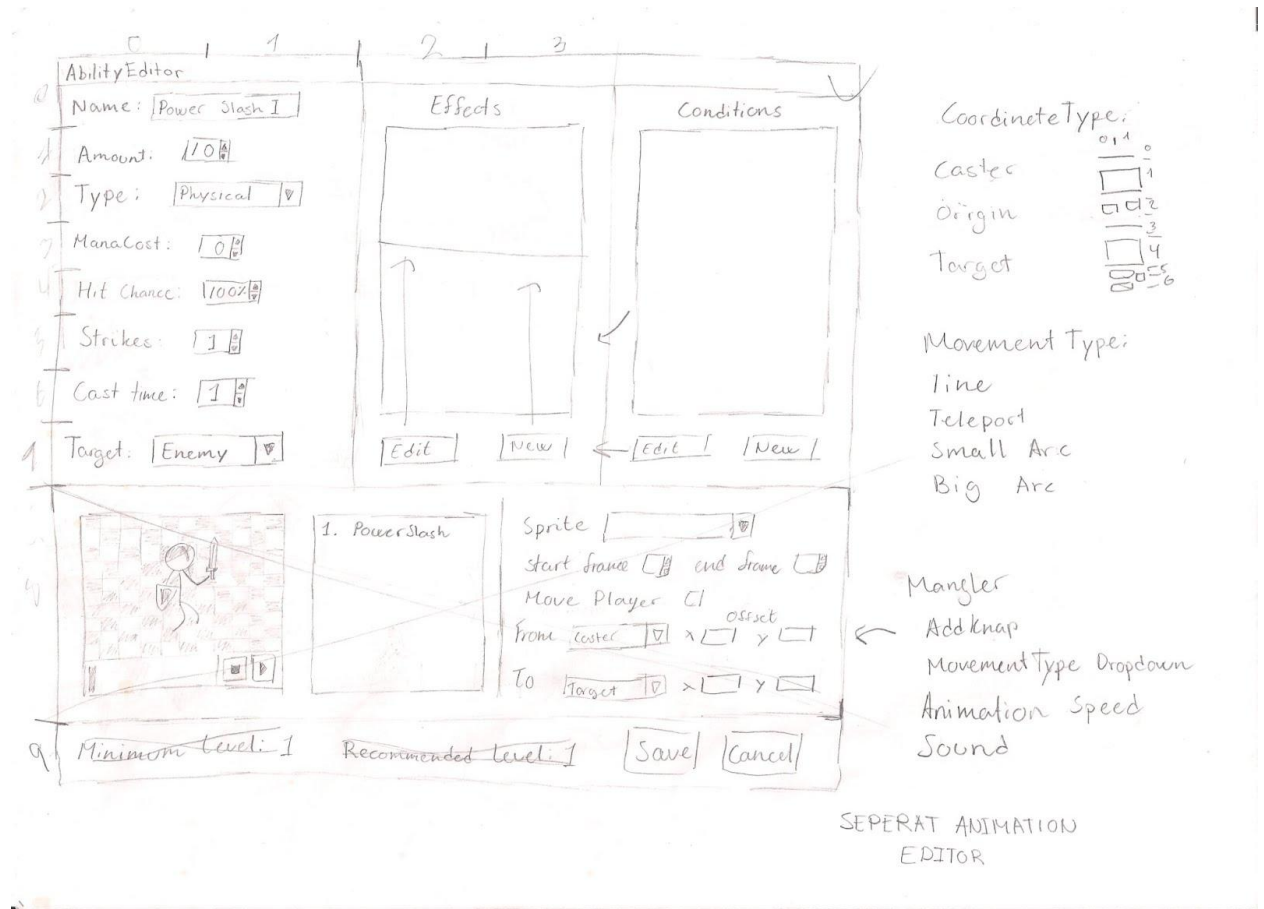 0 1 2 3
AbilityEditor
Name: Power Slash I
Amount: 10
Type: Physical
ManaCost: 0
Hit Chance: 100%
Strikes: 1
Cast time: 1
Target: Enemy
Effects
Edit New
Conditions
Edit New
1. PowerSlash
Sprite
start frame end frame
Move Player
offset
From caster x y
To Target x y
9
Minimum Level: 1
Recommended Level: 1
Save Cancel
CoordineteType:
0 1
0
Caster
1
Origin
2
3
Target
4
5
6
Movement Type:
line
Teleport
Small Arc
Big Arc
Mangler
Add Knap
MovementType Dropdown
Animation Speed
Sound
SEPERAT ANIMATION
EDITOR